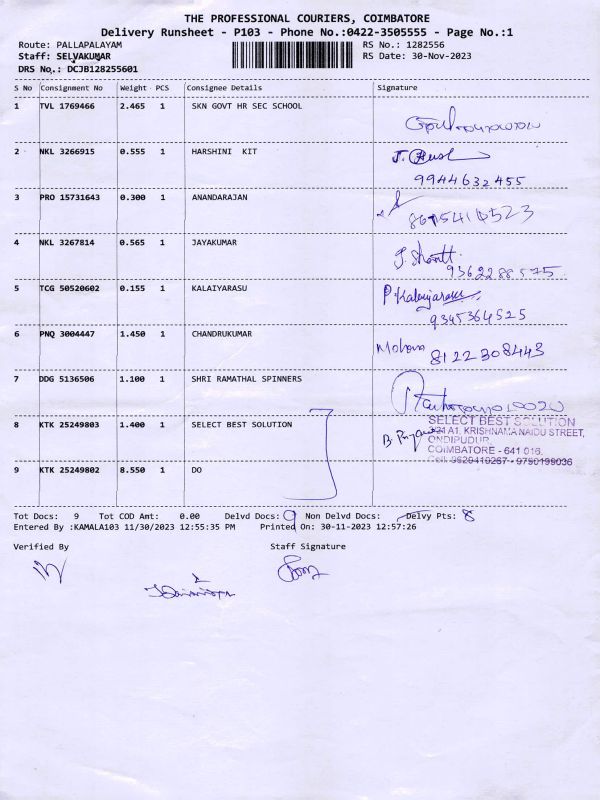 THE PROFESSIONAL COURIERS, COIMBATORE
Delivery Runsheet - P103 - Phone No.:0422-3505555 - Page No.:1
Route: PALLAPALAYAM RS No.: 1282556
Staff: SELVAKUMAR RS Date: 30-Nov-2023
DRS No.: DCJB128255601
S No Consignment No Weight PCS Consignee Details Signature
1 TVL 1769466 2.465 1 SKN GOVT HR SEC SCHOOL
2 NKL 3266915 0.555 1 HARSHINI KIT
9944632455
3 PRO 15731643 0.300 1 ANANDARAJAN
4 NKL 3267814 0.565 1 JAYAKUMAR
9362288575
5 TCG 50520602 0.155 1 KALAIYARASU P. Kalaiyarasu
9345364525
6 PNQ 3004447 1.450 1 CHANDRUKUMAR Mohana 8122308443
7 DDG 5136506 1.100 1 SHRI RAMATHAL SPINNERS
8 KTK 25249803 1.400 1 SELECT BEST SOLUTION
SELECT BEST SOLUTION
A1, KRISHNAMA NAIDU STREET,
ONDIPUDUR,
COIMBATORE - 641 016.
Cell: 9629410267 - 9790199036
9 KTK 25249802 8.550 1 DO
Tot Docs: 9 Tot COD Amt: 0.00 Delvd Docs: 9 Non Delvd Docs: Delvy Pts: 8
Entered By :KAMALA103 11/30/2023 12:55:35 PM Printed On: 30-11-2023 12:57:26
Verified By Staff Signature